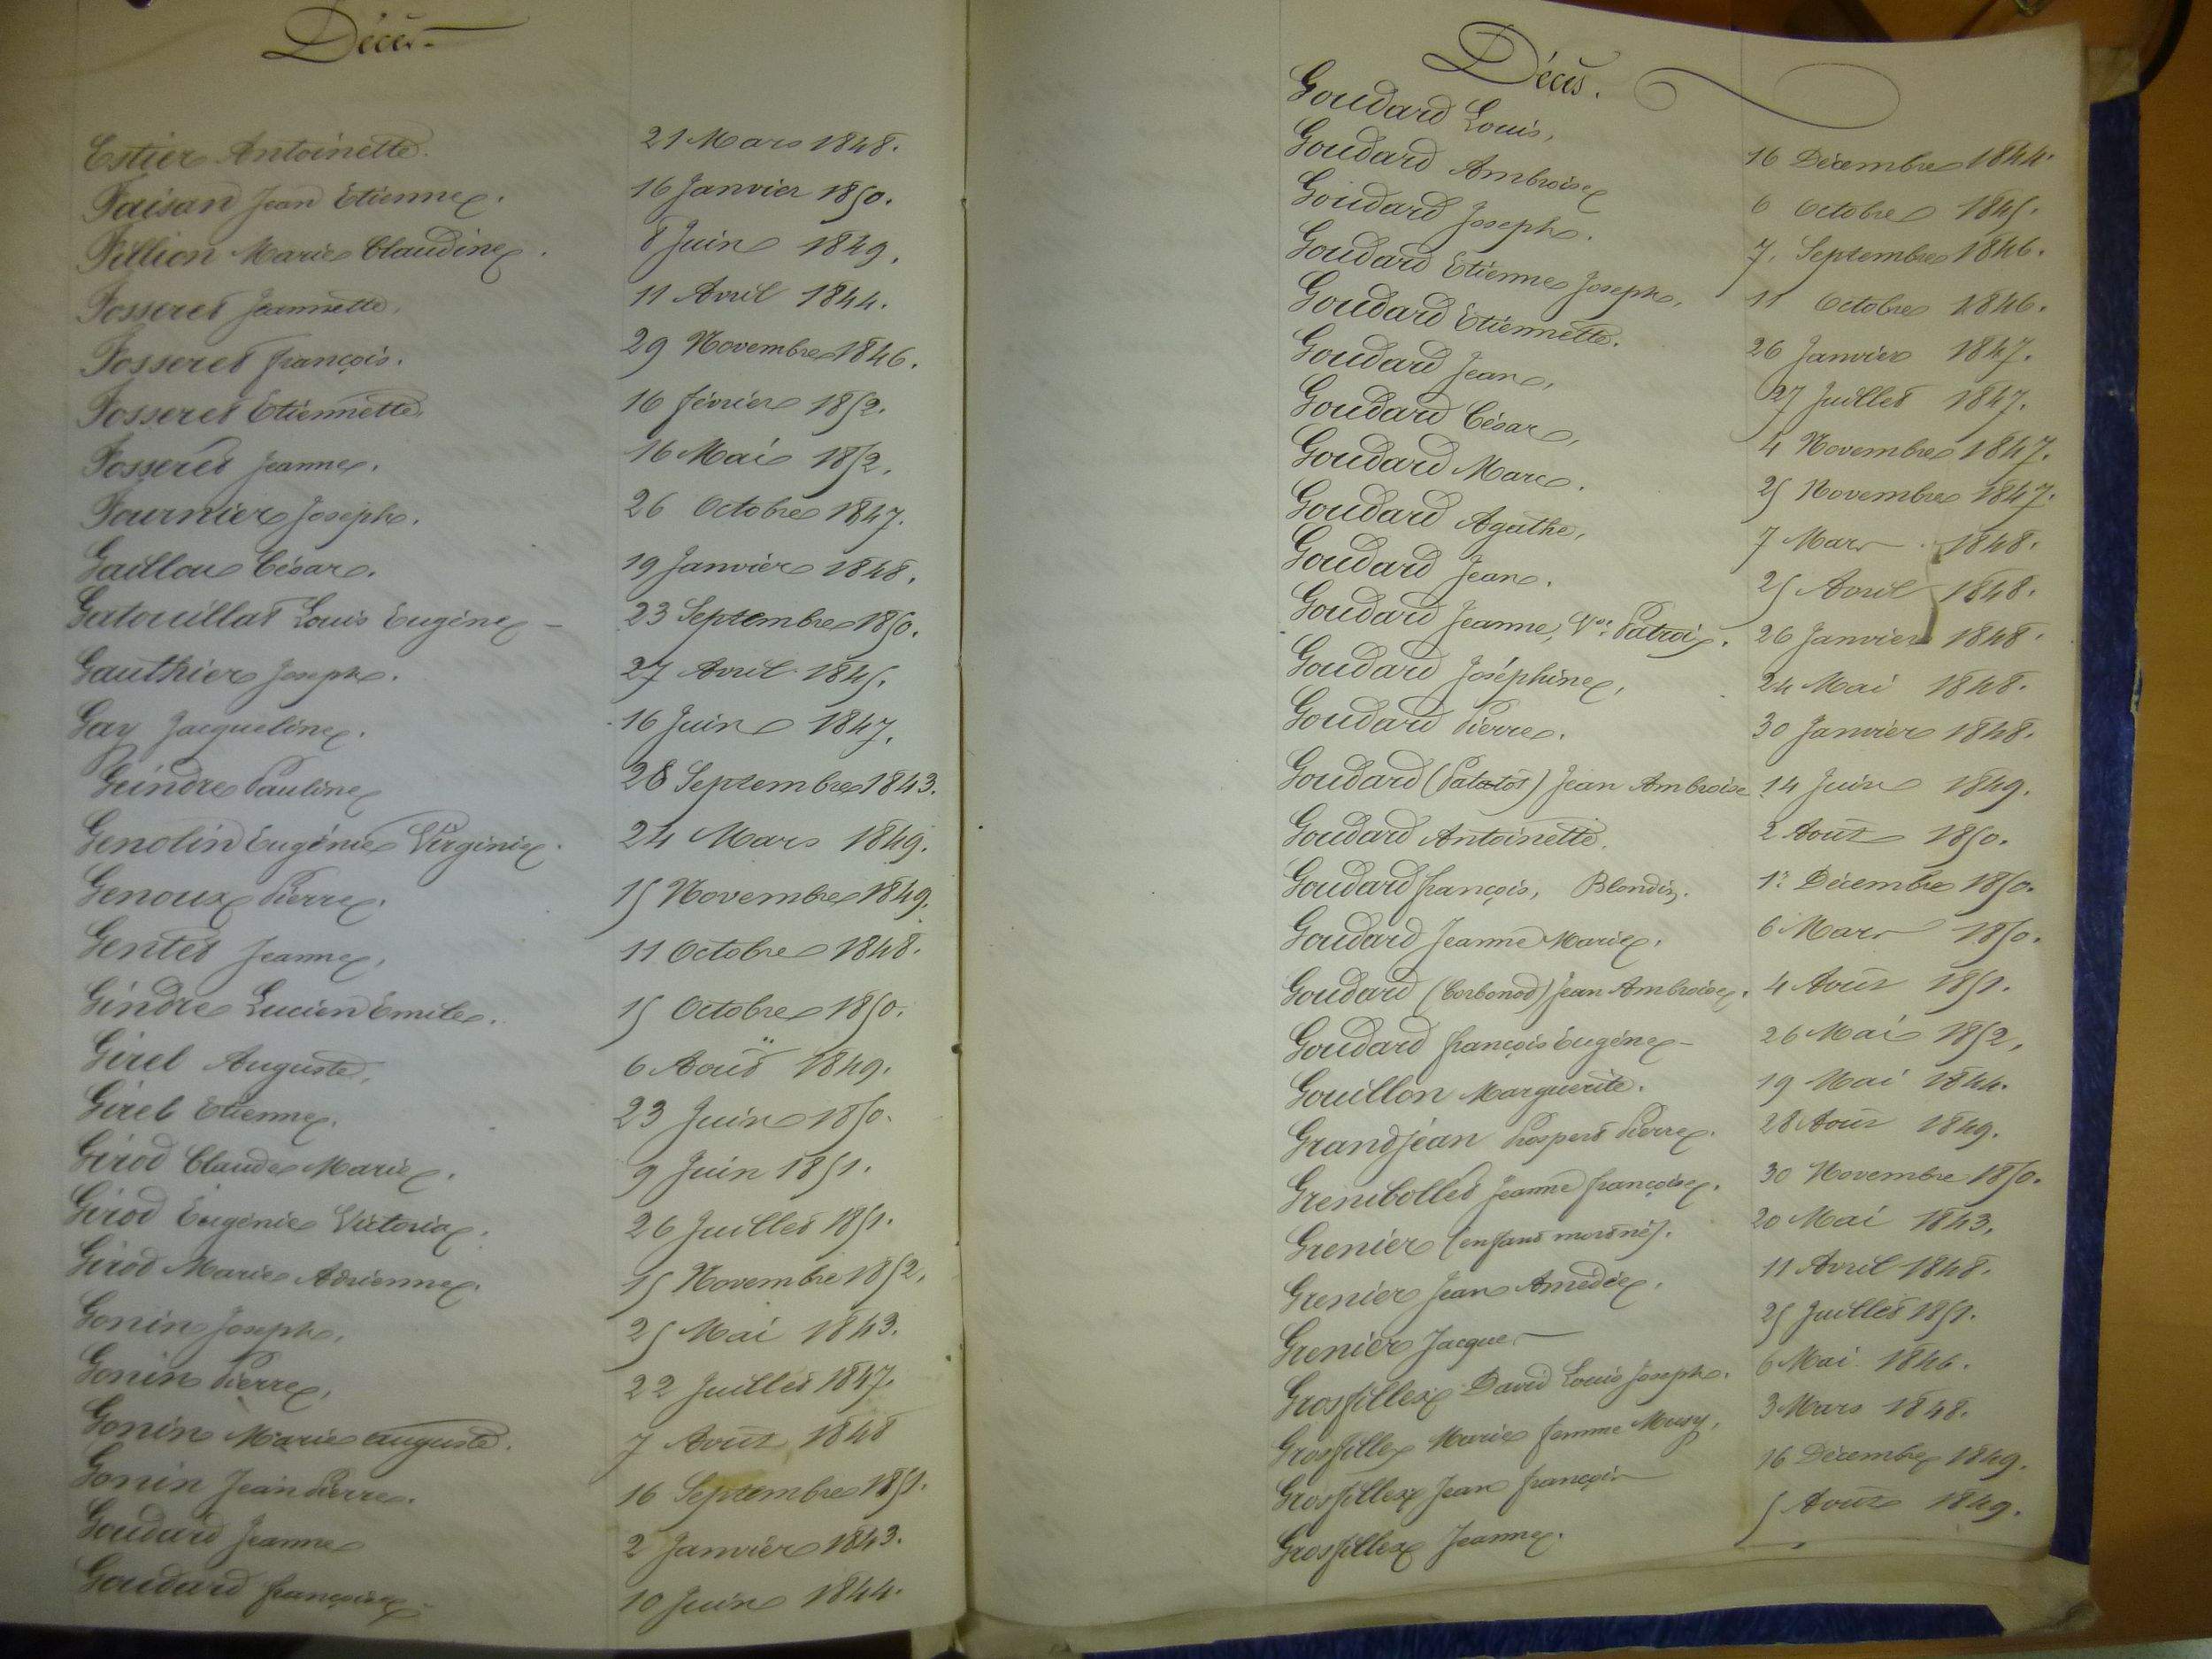 Décès
Estier Antoinette. 21 Mars 1848.
Faisan Jean Etienne. 16 Janvier 1850.
Fillion Marie Claudine. 8 Juin 1849.
Fosseret Jeannette. 11 Avril 1844.
Fosseret françois. 29 Novembre 1846.
Fosseret Etiennette. 16 février 1852.
Fosseret Jeanne. 16 Mai 1852.
Fournier Joseph. 26 Octobre 1847.
Gaillou César. 19 Janvier 1848.
Gatouillat Louis Eugène 23 Septembre 1850.
Gauthier Joseph. 27 Avril 1845.
Gay Jacqueline. 16 Juin 1847.
Geindre Pauline 28 Septembre 1843.
Genolin Eugénie Virginie. 24 Mars 1849.
Genoux Pierre. 15 Novembre 1849.
Gentet Jeanne. 11 Octobre 1848.
Gindre Lucien Emile. 15 Octobre 1850.
Girel Auguste. 6 Août 1849.
Girel Etienne. 23 Juin 1850.
Girod Claude Marie. 9 Juin 1851.
Girod Eugénie Victoria. 26 Juillet 1851.
Girod Marie Adrienne. 15 Novembre 1852.
Gonin Joseph. 25 Mai 1843.
Gonin Pierre. 22 Juillet 1847.
Gonin Marie auguste. 7 Août 1848
Gonin Jean Pierre. 16 Septembre 1851.
Goudard Jeanne 2 Janvier 1843.
Goudard françoise 10 Juin 1844.
Décès.
Goudard Louis, 16 Décembre 1844.
Goudard Ambroise 6 Octobre 1845.
Goudard Joseph. 7. Septembre 1846.
Goudard Etienne Joseph, 11 Octobre 1846.
Goudard Etiennette. 26 Janvier 1847.
Goudard Jean, 27 Juillet 1847.
Goudard César, 4 Novembre 1847.
Goudard Marc. 25 Novembre 1847.
Goudard Agathe, 7 Mars 1848.
Goudard Jean. 25 Avril 1848.
Goudard Jeanne, Vve. 26 Janvier 1848.
Goudard Joséphine, 24 Mai 1848.
Goudard Pierre. 30 Janvier 1848.
Goudard (Patatot) Jean Ambroise 14 Juin 1849.
Goudard Antoinette. 2 Août 1850.
Goudard françois, Blondin. 1er Décembre 1850.
Goudard Jeanne Marie. 6 Mars 1850.
Goudard (Corbonod) Jean Ambroise. 4 Août 1851.
Goudard françois Eugène 26 Mai 1852,
Gouillon Marguerite. 19 Mai 1844.
Grandjéan Prosper Pierre. 28 Août 1849.
Grenibollet Jeanne françoise. 30 Novembre 1850.
Grenier (enfant mort né). 20 Mai 1843.
Grenier Jean Amédée. 11 Avril 1848.
Grenier Jacques 25 Juillet 1851.
Grosfillex David Louis Joseph. 6 Mai 1846.
Grosfillex Marie femme Musy, 3 Mars 1848.
Grosfillex Jean françois 16 Décembre 1849.
Grosfillex Jeanne. 5 Août 1849.